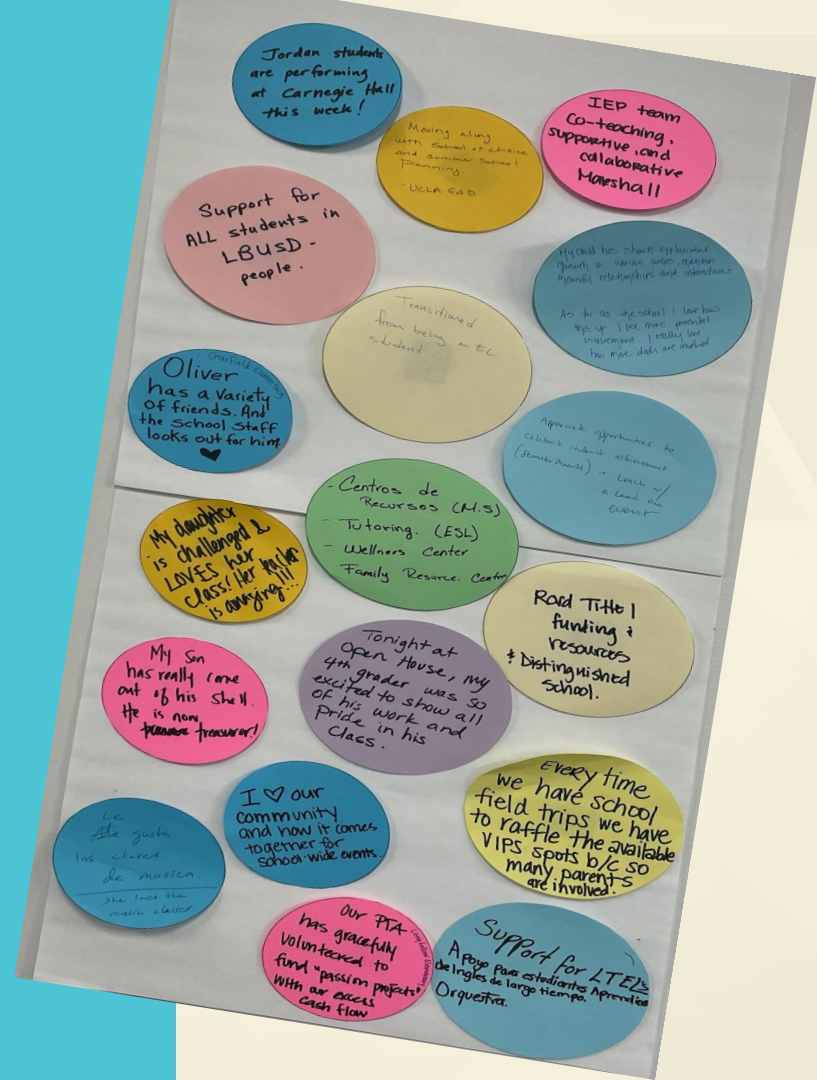 Jordan students
are performing
at Carnegie Hall
this week!
Moving along
with school of choice
and summer school
planning
- UCLA EdD.
IEP team
Co-teaching,
supportive, and
collaborative
Marshall
Support for
ALL students in
LBUSD -
people.
My child has shown
growth in various areas, maintain
relationships and interactions
As far as the school I love how
this yr I see more parental
involvement I really love
how more dads are involved
Transitioned
from being an EL
student
Garfield Elementary
Oliver
has a variety
of friends. And
the school staff
looks out for him
♥
Appreciate opportunities to
celebrate student achievement
(Semester Awards) + Lunch w/
a Loved one
event
- Centros de
Recursos (M.S)
- Tutoring. (ESL)
- Wellners Center
Family Resorce. Center
My daughter
is challenged &
LOVES her
class! Her teacher
is amazing!!!
Road Title 1
funding &
resources
& Distinguished
School.
My Son
has really come
out of his shell.
He is now
treasurer!
Tonight at
Open House, my
4th grader was so
excited to show all
of his work and
Pride in his
Class.
Every time
we have school
field trips we have
to raffle the available
VIPS spots b/c so
many parents
are involved.
I ♥ our
community
and how it comes
together for
school-wide events.
Le
gusta
las clases
de musica.
She loves the
music classes
Our PTA
has gracefully
volunteered to
fund "passion projects"
with our excess
cash flow
Longfellow Elementary
Support for LTELs
Apoyo para estudiantes Aprendices
de Ingles de largo tiempo.
Orquestra.